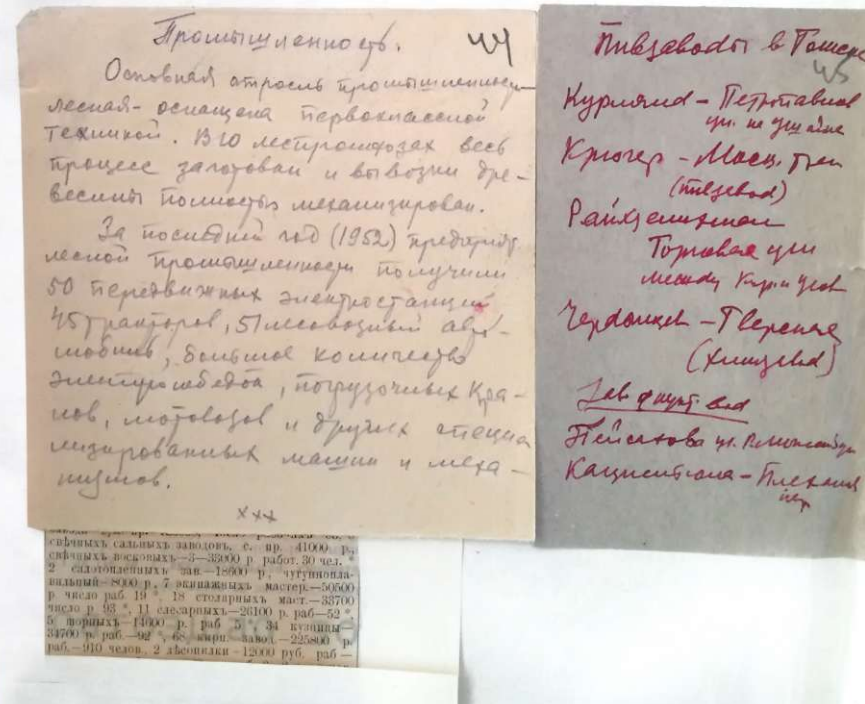 Промышленность. 44
Основная отрасль промышленнос-
лесная - оснащена первоклассной
техникой. В 10 леспромхозах весь
процесс заготовки и вывозки дре-
весины полностью механизирован.
За последний год (1952) предприят
лесной промышленности получили
50 передвижных электростанций
45 тракторов, 51 лесовозный авто-
мобиль, большое количество
электролебедок, погрузочных кра-
нов, мотовозов и других специа
лизированных машин и меха-
низмов.
xxx
свѣчныхъ сальныхъ заводовъ, с. пр. 41000 р.,
свѣчныхъ восковыхъ—3—33000 р. работ. 30 чел.
2 салотопленныхъ зав.—18600 р., чугунопла-
вильный—8000 р., 7 экипажныхъ мастер.—50500
р. число раб. 19 *, 18 столярныхъ маст.—33700
число р. 93 *, 11 слесарныхъ—26100 р. раб—52 *,
5 шорныхъ—14000 р. раб. 5 *, 34 кузницы—
34700 р. раб.—92 *, 68 кирп. завод.—225800 р.
раб.—910 челов., 2 лѣсопилки—12000 руб. раб—
Пивзаводы в Томске
45
Курлянд - Петропавлов
ул. на Ушайке
Крюгер - Моск. тра
(пивзавод)
Райхзелигман
Торговая ул
между
Чердынцев - Тверская
(химзавод)
Зав фрукт вод
Пейсахова ул.
Каценеленбоген - Плехан
пер